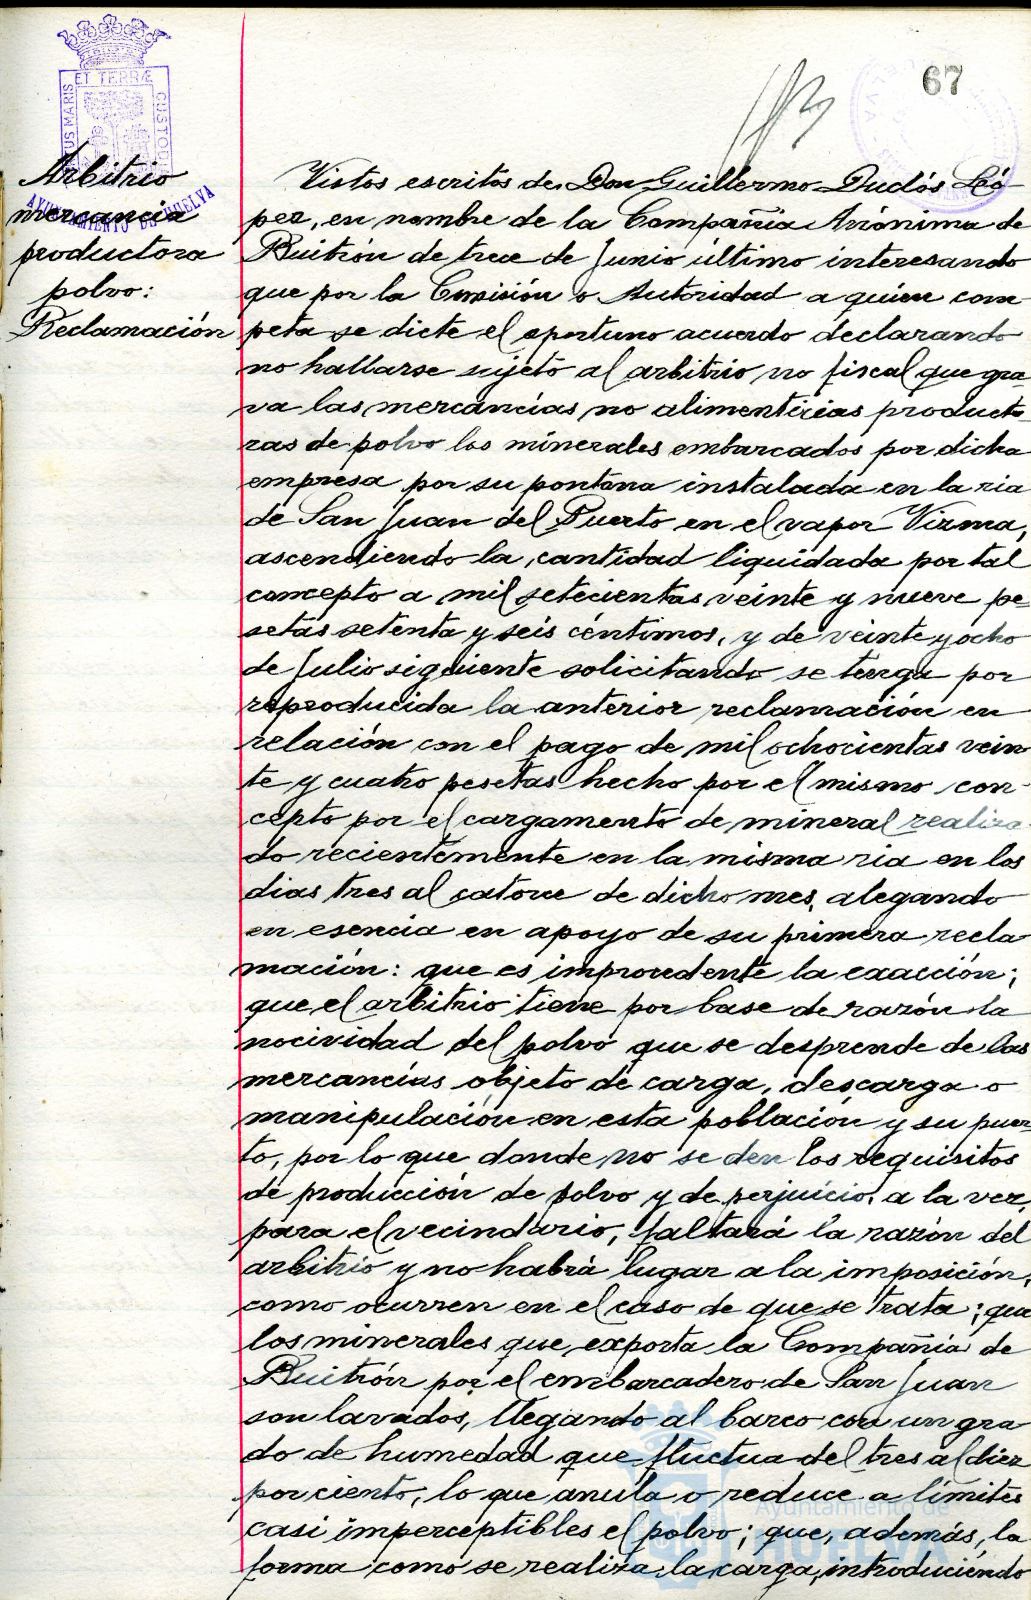 67
ET TERRÆ
PORTUS MARIS
CUSTODIA
AYUNTAMIENTO DE HUELVA
Arbitrio
mercancia
productora
polvo:
Reclamación
Vistos escritos de Don Guillermo Duclós Ló-
pez, en nombre de la Compañía Anónima de
Buitrón de trece de Junio último interesando
que por la Comisión o Autoridad a quien com
peta se dicte el oportuno acuerdo declarando
no hallarse sujeto al arbitrio no fiscal que gra
va las mercancías no alimenticias producto
ras de polvo los minerales embarcados por dicha
empresa por su pontana instalada en la ria
de San Juan del Puerto en el vapor Virma,
ascendiendo la cantidad liquidada por tal
concepto a mil setecientas veinte y nueve pe
setas setenta y seis céntimos, y de veinte y ocho
de Julio siguiente solicitando se tenga por
reproducida la anterior reclamación en
relación con el pago de mil ochocientas vein
te y cuatro pesetas hecho por el mismo con-
cepto por el cargamento de mineral realiza-
do recientemente en la misma ria en los
dias tres al catorce de dicho mes, alegando
en esencia en apoyo de su primera recla
mación: que es improcedente la exacción;
que el arbitrio tiene por base de razón la
nocividad del polvo que se desprende de las
mercancías objeto de carga, descarga o
manipulación en esta población y su puer-
to, por lo que donde no se den los requisitos
de producción de polvo y de perjuicio, a la vez,
para el vecindario, faltará la razón del
arbitrio y no habrá lugar a la imposición,
como ocurren en el caso de que se trata; que
los minerales que exporta la Compañía de
Buitrón por el embarcadero de San Juan
son lavados, llegando al barco con un gra
do de humedad que fluctua del tres al diez
por ciento, lo que anula o reduce a límites
casi imperceptibles el polvo; que, además, la
forma como se realiza la carga, introduciendo
Ayuntamiento de
HUELVA